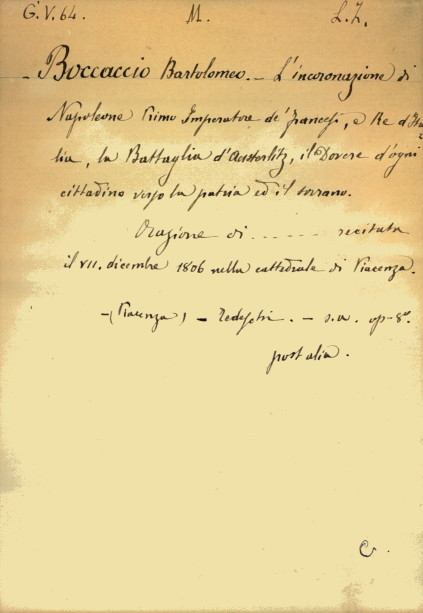 G.V.64. M. L.I.
- Boccaccio Bartolomeo. - L'incoronazione di
Napoleone Primo Imperatore de' Francesi, e Re d'Ita=
lia, la Battaglia d'Austerlitz, il Dovere d'ogni
cittadino verso la patria ed il sovrano.
Orazione di ..... recitata
il VII. dicembre 1806 nella cattedrale di Piacenza.
- (Piacenza) - Tedeschi. - s.a. op-8º.
post alia.
C.